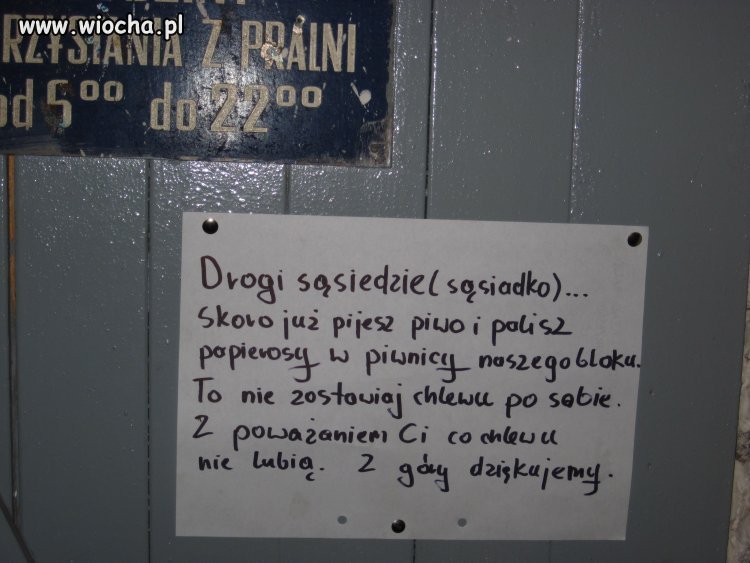 www.wiocha.pl
RZYSTANIA Z PRALNI
od 5⁰⁰ do 22⁰⁰
Drogi sąsiedzie (sąsiadko)...
skoro już pijesz piwo i palisz
papierosy w piwnicy naszego bloku.
To nie zostawiaj chlewu po sobie.
Z poważaniem Ci co chlewu
nie lubią. Z góry dziękujemy.